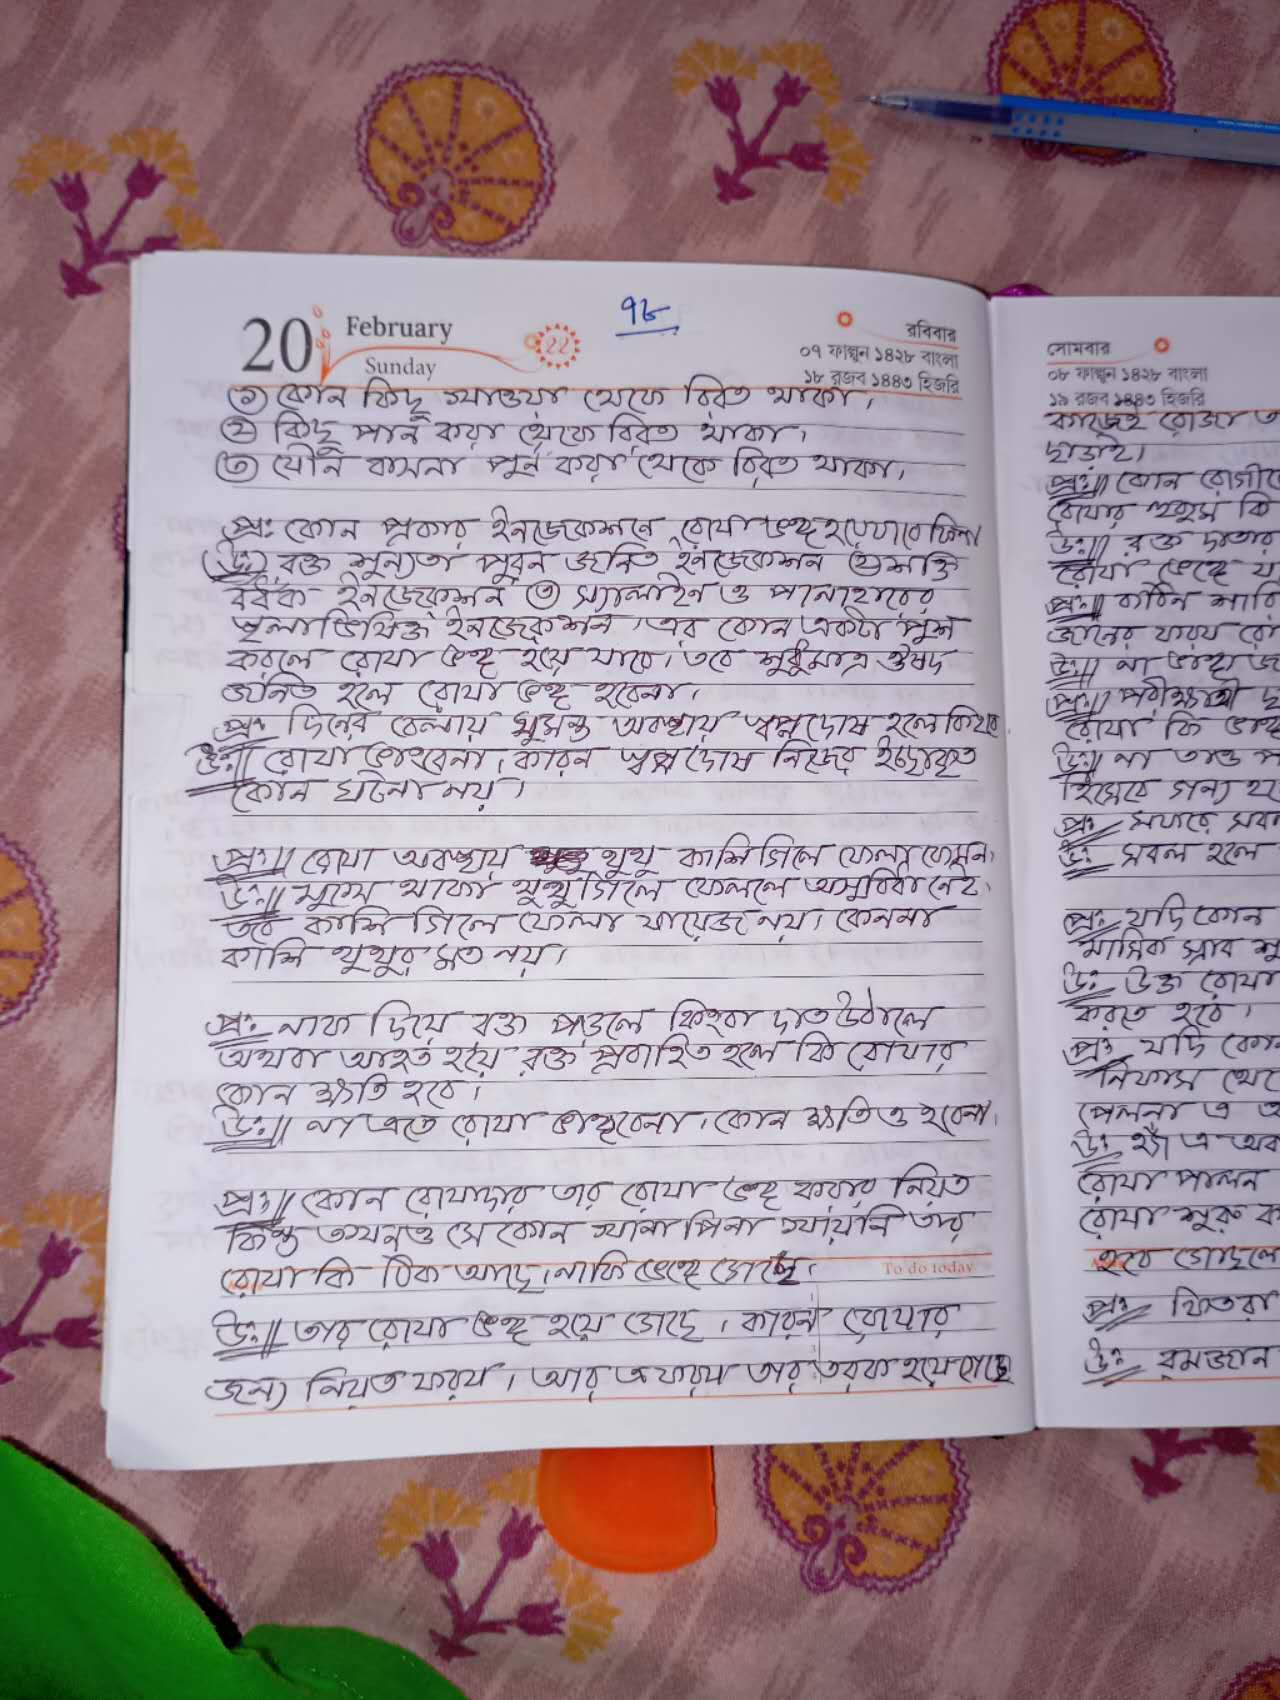 20 February
Sunday
22
৭৮
রবিবার
০৭ ফাল্গুন ১৪২৮ বাংলা
১৮ রজব ১৪৪৩ হিজরি
১) কোন কিছু খাওয়া থেকে বিরত থাকা।
২) কিছু পান করা থেকে বিরত থাকা।
৩) যৌন বাসনা পুর্ন করা থেকে বিরত থাকা।
প্র: কোন প্রকার ইনজেকশনে রোযা ভঙ্গ হয়ে যাবে কিনা
উ: ১) রক্ত শুন্যতা পুরন জনিত ইনজেকশন ২) শক্তি
বর্ধক ইনজেকশন ৩) স্যালাইন ও পানাহারের
স্থলাভিষিক্ত ইনজেকশন। এর কোন একটা পুশ
করলে রোযা ভঙ্গ হয়ে যাবে। তবে শুধুমাত্র ঔষদ
জনিত হলে রোযা ভঙ্গ হবেনা।
প্র: দিনের বেলায় ঘুমন্ত অবস্থায় স্বপ্নদোষ হলে
উ:॥ রোযা ভাংবেনা। কারন স্বপ্নদোষ নিজের ইচ্ছাকৃত
কোন ঘটনা নয়।
প্র:॥ রোযা অবস্থায় থুথু কাশি গিলে ফেলা কেমন।
উ:॥ মুখে থাকা থুথু গিলে ফেললে অসুবিধা নেই।
তবে কাশি গিলে ফেলা যায়েজ নয়। কেননা
কাশি থুথুর মত নয়।
প্র: নাক দিয়ে রক্ত পড়লে কিংবা দাত উঠালে
অথবা আহত হয়ে রক্ত প্রবাহিত হলে কি রোযার
কোন ক্ষতি হবে।
উ:॥ না এতে রোযা ভাঙ্গবেনা। কোন ক্ষতি ও হবেনা।
প্র:॥ কোন রোযাদার তার রোযা ভঙ্গ করার নিয়ত
কিন্তু তখনও সে কোন খানা পিনা খায়নি তার
রোযা কি ঠিক আছে। নাকি ভেঙ্গে গেছে।
To do today
উ:॥ তার রোযা ভঙ্গ হয়ে গেছে। কারন রোযার
জন্য নিয়ত ফরয। আর এ ফরয তার তরক হয়ে গেছে
সোমবার
০৮ ফাল্গুন ১৪২৮ বাংলা
১৯ রজব ১৪৪৩ হিজরি
কাজেই রোজা
ছাড়াই।
প্র:॥ কোন
রোযার হুকুম কি
উ:॥ রক্ত দাতার
রোযা ভঙ্গে
প্র:॥ কঠিন
উ:॥ না
প্র:॥
রোযা কি
উ:॥ না তাও
হিসেবে গন্য
প্র: সফরে
উ: হলে
প্র: যদি কোন
মাসিক স্রাব
উ: উক্ত রোযা
করতে হবে।
প্র: যদি কোন
নিফাস থেকে
এ
উ: হ্যাঁ এ
রোযা পালন
রোযা শুরু
হবে
প্র: ফিতরা
উ: রমজান